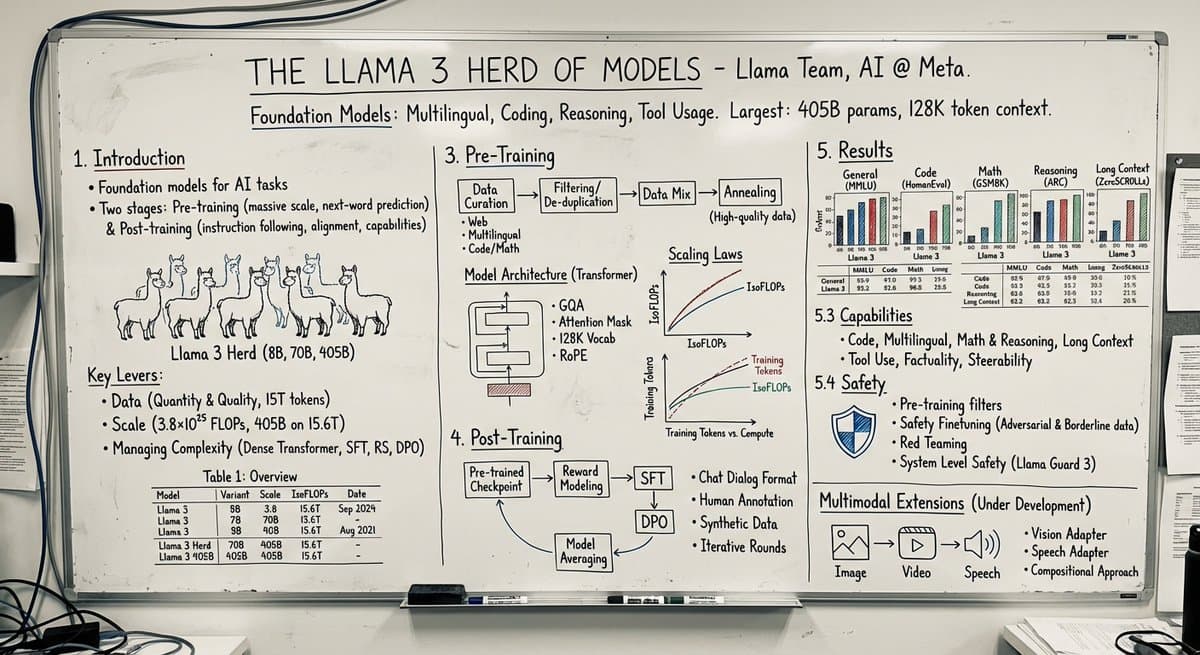 THE LLAMA 3 HERD OF MODELS – Llama Team, AI @ Meta.
Foundation Models: Multilingual, Coding, Reasoning, Tool Usage. Largest: 405B params, 128K token context.
1. Introduction
• Foundation models for AI tasks
• Two stages: Pre-training (massive scale, next-word prediction)
& Post-training (instruction following, alignment, capabilities)
Llama 3 Herd (8B, 70B, 405B)
Key Levers:
• Data (Quantity & Quality, 15T tokens)
• Scale (3.8×10²⁵ FLOPs, 405B on 15.6T)
• Managing Complexity (Dense Transformer, SFT, RS, DPO)
Table 1: Overview
Model Variant Scale IsoFLOPs Date
Llama 3 8B 3.8 15.6T Sep 2024
Llama 3 7B 70B 13.6T -
Llama 3 9B 40B 15.6T Aug 2021
Llama 3 Herd 70B 405B 15.6T -
Llama 3 405B 405B 405B 15.6T -
3. Pre-Training
Data Curation
Filtering/ De-duplication
Data Mix
Annealing
(High-quality data)
• Web
• Multilingual
• Code/Math
Model Architecture (Transformer)
• GQA
• Attention Mask
• 128K Vocab
• RoPE
Scaling Laws
IsoFLOPs
IsoFLOPs
IsoFLOPs
Training Tokens
Training
Tokens
IsoFLOPs
Training Tokens vs. Compute
4. Post-Training
Pre-trained Checkpoint
Reward Modeling
SFT
DPO
Model Averaging
• Chat Dialog Format
• Human Annotation
• Synthetic Data
• Iterative Rounds
5. Results
General
(MMLU)
Code
(HumanEval)
Math
(GSM8K)
Reasoning
(ARC)
Long Context
(ZeroSCROLLs)
Llama 3
Llama 3
Llama 3
Llama 3
Llama 3
MMLU Code Math Long
General
Llama 3
MMLU Code Math Long ZeroSCROLLS
Code
Code
Reasoning
Long Context
5.3 Capabilities
• Code, Multilingual, Math & Reasoning, Long Context
• Tool Use, Factuality, Steerability
5.4 Safety
• Pre-training filters
• Safety Finetuning (Adversarial & Borderline data)
• Red Teaming
• System Level Safety (Llama Guard 3)
Multimodal Extensions (Under Development)
Image
Video
Speech
• Vision Adapter
• Speech Adapter
• Compositional Approach